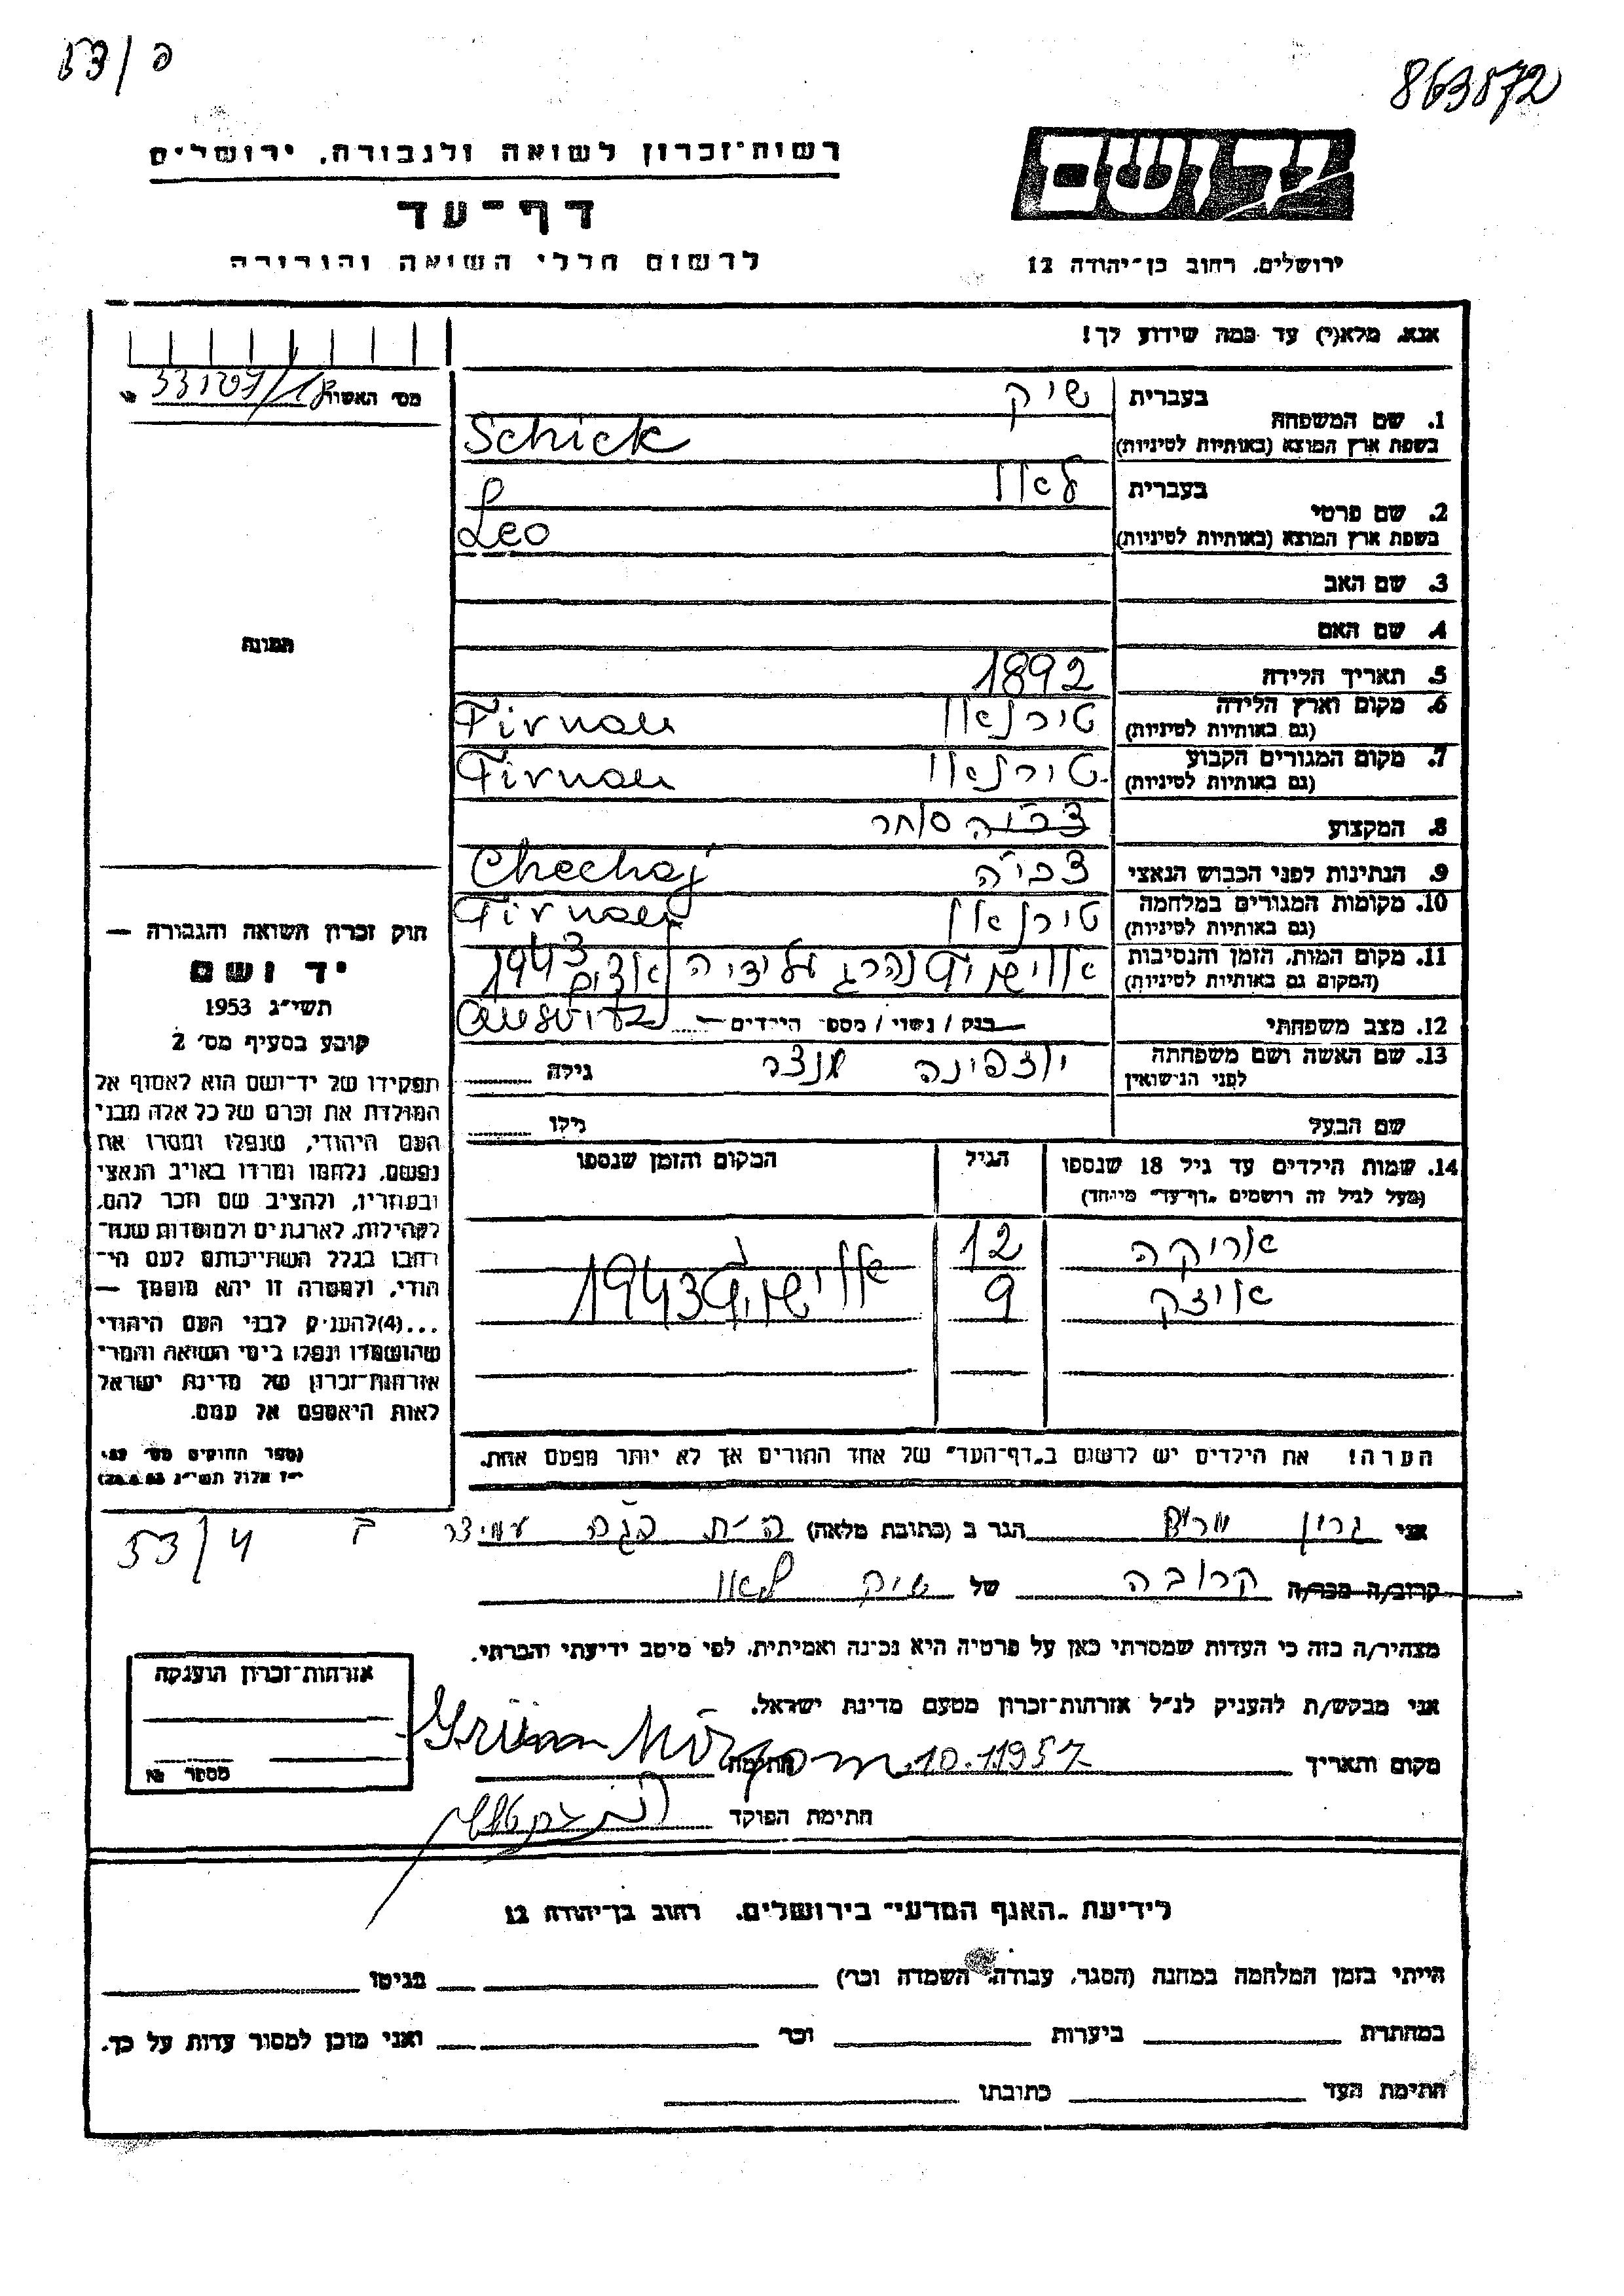 53/פ
863872
רשות־זכרון לשואה ולגבורה, ירושלים
דף־עד
לרשום חללי השואה והגבורה
יד ושם
ירושלים, רחוב בן־יהודה 12
אנא, מלא(י) עד כמה שידוע לך!
מס׳ האשור
1. שם המשפחה
בעברית שיק
בשפת ארץ המוצא (באותיות לטיניות) Schick
2. שם פרטי
בעברית לאו
בשפת ארץ המוצא (באותיות לטיניות) Leo
3. שם האב
4. שם האם
5. תאריך הלידה 1892
6. מקום וארץ הלידה (גם באותיות לטיניות) טירנאו Tirnau
7. מקום המגורים הקבוע (גם באותיות לטיניות) טירנאו Tirnau
8. המקצוע צ׳כיה סוחר
9. הנתינות לפני הכבוש הנאצי צ׳כיה Chechaj
10. מקומות המגורים במלחמה (גם באותיות לטיניות) טירנאו Tirnau
11. מקום המות, הזמן והנסיבות (המקום גם באותיות לטיניות) אושויץ נהרג על ידי הנאצים 1943
12. מצב משפחתי רווק / נשוי / מספר הילדים
13. שם האשה ושם משפחתה לפני הנישואין יוזפינה מנצר גילה
שם הבעל גילו
14. שמות הילדים עד גיל 18 שנספו
(מעל לגיל זה רושמים „דף־עד״ מיוחד)
הגיל
המקום והזמן שנספו
אריקה 12
איצק 9 אושויץ 1943
הערה! את הילדים יש לרשום ב„דף־העד״ של אחד ההורים אך לא יותר מפעם אחת.
תמונה
חוק זכרון השואה והגבורה —
יד ושם
תשי״ג 1953
קובע בסעיף מס׳ 2
תפקידו של יד־ושם הוא לאסוף אל
המולדת את זכרם של כל אלה מבני
העם היהודי, שנפלו ומסרו את
נפשם, נלחמו ומרדו באויב הנאצי
ובעוזריו, ולהציב שם וזכר להם,
לקהילות, לארגונים ולמוסדות שנח־
רבו בגלל השתייכותם לעם הי־
הודי, ולמטרה זו יהא מוסמך —
...(4)להעניק לבני העם היהודי
שהושמדו ונפלו בימי השואה והמרי
אזרחות־זכרון של מדינת ישראל
לאות היאספם אל עמם.
(ספר החוקים מס׳ 132,
י״ז אלול תשי״ג 28.8.53)
53/4
אני גרין מרים הגר ב (כתובת מלאה)
קרוב/ה מכר/ה קרובה של שיק לאו
מצהיר/ה בזה כי העדות שמסרתי כאן על פרטיה היא נכונה ואמיתית, לפי מיטב ידיעתי והכרתי.
אני מבקש/ת להעניק לנ״ל אזרחות־זכרון מטעם מדינת ישראל.
מקום ותאריך 10.1.1957 חתימה Grünn Mirjam
חתימת הפוקד
אזרחות־זכרון הוענקה
מספר №
לידיעת „האגף המדעי״ בירושלים, רחוב בן־יהודה 12
הייתי בזמן המלחמה במחנה (הסגר, עבודה, השמדה וכו׳) בגיטו
במחתרת ביערות וכו׳ ואני מוכן למסור עדות על כך.
חתימת העד כתובתו